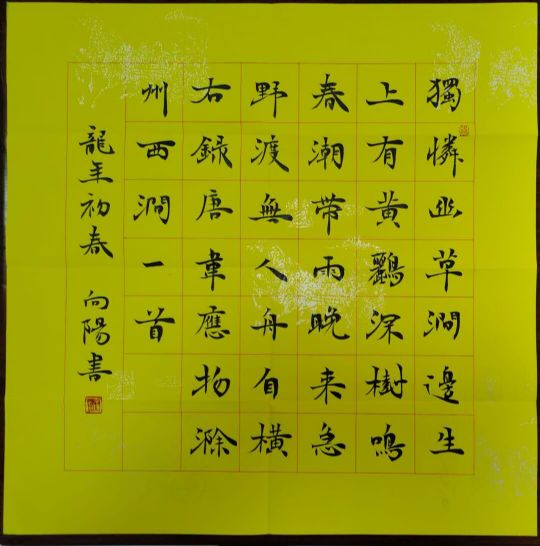 獨憐幽草澗邊生
上有黃鸝深樹鳴
春潮帶雨晚来急
野渡無人舟自横
右録唐韋應物滁
州西澗一首
龍年初春 向陽書